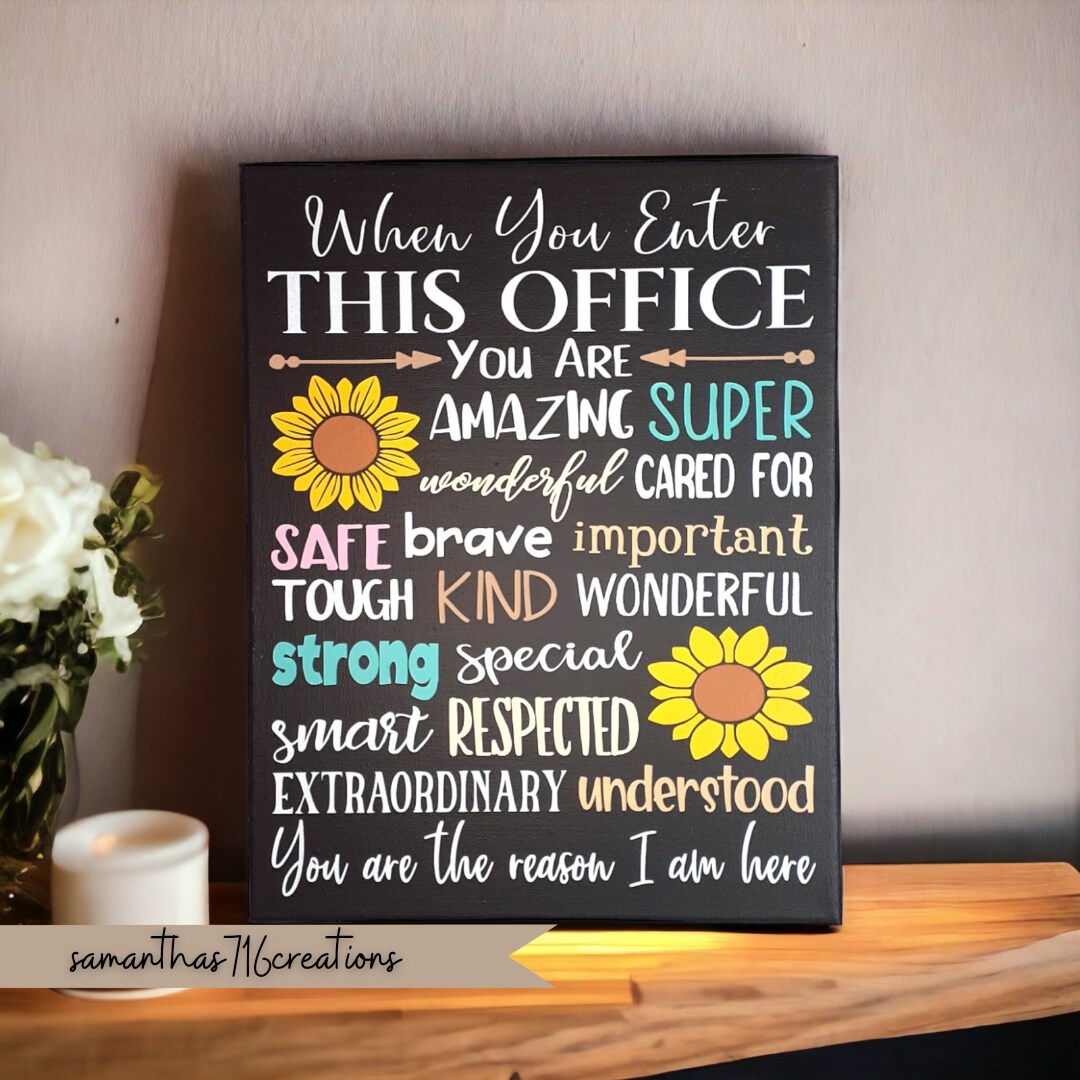 When You Enter
THIS OFFICE
YOU ARE
AMAZING SUPER
wonderful CARED FOR
SAFE brave important
TOUGH KIND WONDERFUL
strong special
smart RESPECTED
EXTRAORDINARY understood
You are the reason I am here
samanthas716creations